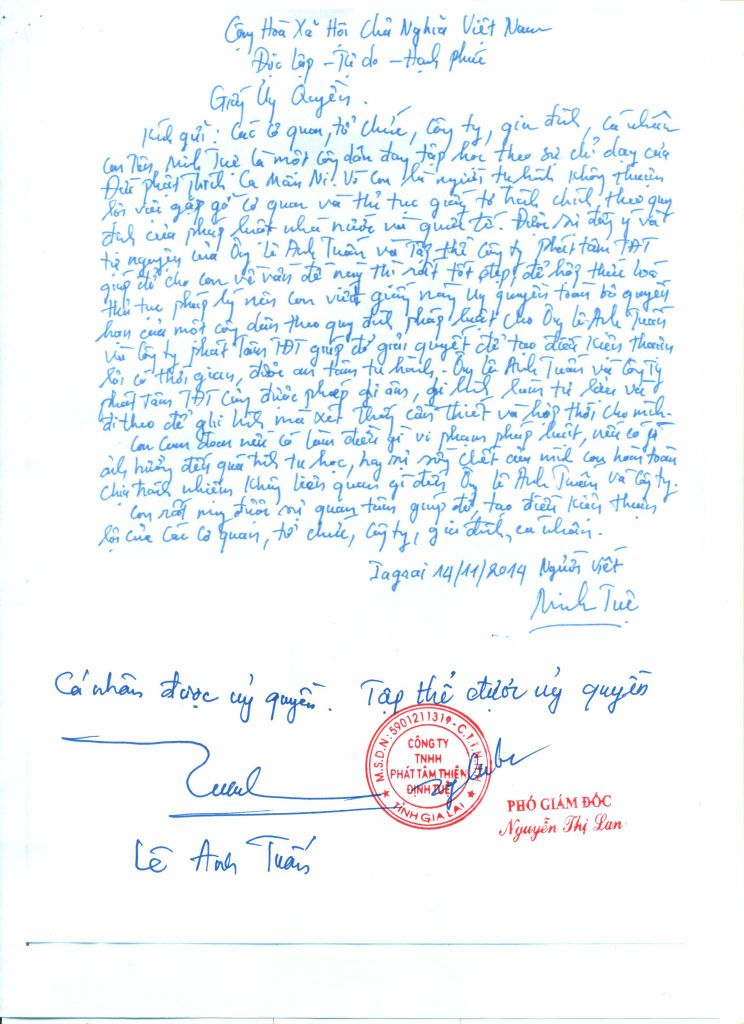 Cộng Hoà Xã Hội Chủ Nghĩa Việt Nam
Độc lập - Tự do - Hạnh phúc
Giấy Uỷ Quyền.
Kính gửi: Các cơ quan, tổ chức, Công ty, gia đình, cá nhân
con Tên, Minh Tuệ là một công dân đang tập học theo sự chỉ dạy của
Đức phật Thích Ca Mâu Ni. Vì con là người tu hành không thuận
lợi việc gặp gỡ cơ quan và thủ tục giấy tờ hành chính, theo quy
định của pháp luật nhà nước và quốc tế. Được sự đồng ý và
tự nguyện của Ông Lê Anh Tuấn và Tập thể Công ty phát tâm TĐT
giúp đỡ cho con về vấn đề này thì rất tốt đẹp, để hợp thức hoá
thủ tục pháp lý nên con viết giấy này Uỷ quyền toàn bộ quyền
hạn của một công dân theo quy định pháp luật cho Ông Lê Anh Tuấn
và Công ty phát Tâm TĐT giúp đỡ giải quyết để tạo điều kiện thuận
lợi có thời gian, được an tâm tu hành. Ông Lê Anh Tuấn và Công Ty
phát tâm TĐT cũng được phép ghi âm, ghi hình
đi theo để ghi hình mà xét thấy cần thiết và hợp thời cho mình.
Con cam đoan nếu có làm điều gì vi phạm pháp luật, nếu có gì
ảnh hưởng đến quá trình tu học, hay sự sống chết của mình con hoàn toàn
chịu trách nhiệm không liên quan gì đến Ông Lê Anh Tuấn và Công ty.
Con rất mong được sự quan tâm giúp đỡ, tạo điều kiện thuận
lợi của Các Cơ quan, tổ chức, Công ty, gia đình, cá nhân.
Iagrai 14/11/2024 Người viết
Minh Tuệ
Cá nhân được uỷ quyền. Tập thể được uỷ quyền
M.S.D.N: 5901211319 - C.T.T.N.H.H
CÔNG TY
TNHH
PHÁT TÂM THIỀN
ĐỊNH TUỆ
TỈNH GIA LAI
PHÓ GIÁM ĐỐC
Nguyễn Thị Lan
Lê Anh Tuấn